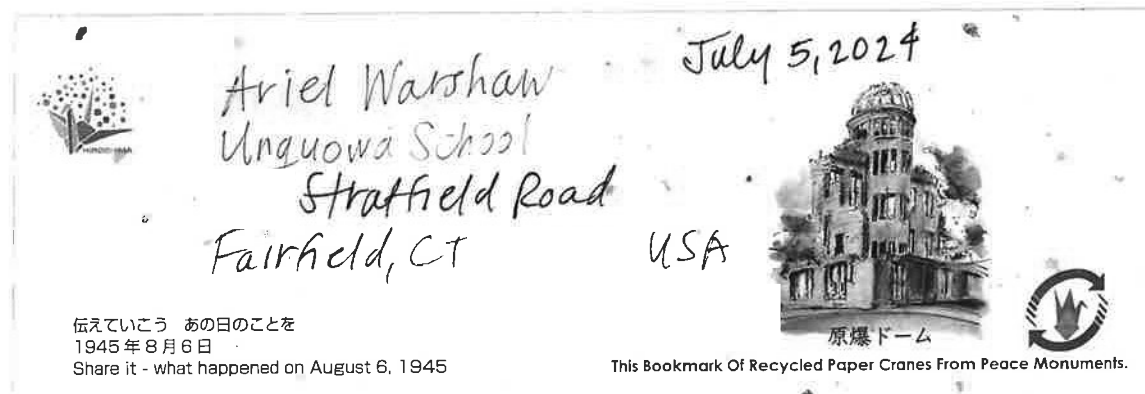 July 5, 2024
Ariel Warshaw
Unquowa School
Stratfield Road
Fairfield, CT USA
HIROSHIMA
原爆ドーム
伝えていこう あの日のことを
1945年8月6日
Share it - what happened on August 6, 1945
This Bookmark Of Recycled Paper Cranes From Peace Monuments.